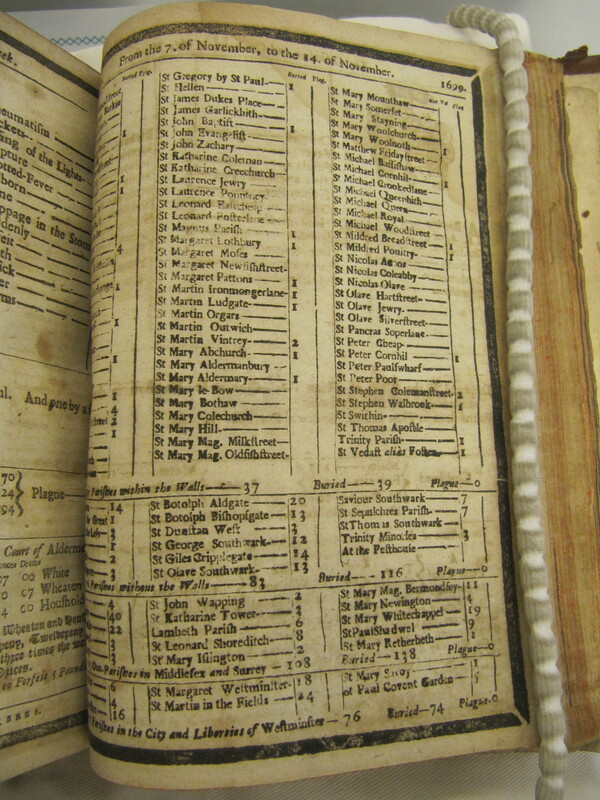 From the 7. of November, to the 14. of November. 1699.
Buried Plag.
Buried Plag.
Bur'd Plag
St Gregory by St Paul
St Hellen 1
St James Dukes Place
St James Garlickhith
St John Baptist
St John Evangelist 1
St John Zachary
St Katharine Coleman
St Katharine Creechurch
St Laurence Jewry
St Laurence Pountney
St Leonard Eastcheap
St Leonard Fosterlane
St Magnus Parish 1
St Margaret Lothbury 1
St Margaret Moses
St Margaret Newfishstreet
St Margaret Pattons 1
St Martin Ironmongerlane 1
St Martin Ludgate 1
St Martin Orgars
St Martin Outwich
St Martin Vintrey 2
St Mary Abchurch 1
St Mary Aldermanbury
St Mary Aldermary 1
St Mary le Bow
St Mary Bothaw
St Mary Colechurch
St Mary Hill
St Mary Mag. Milkstreet
St Mary Mag. Oldfishstreet
St Mary Mounthaw
St Mary Somerset
St Mary Stayning
St Mary Woolchurch
St Mary Woolnoth
St Matthew Fridaystreet 1
St Michael Bassishaw
St Michael Cornhil
St Michael Crookedlane 1
St Michael Queenhith
St Michael Quern
St Michael Royal
St Michael Woodstreet
St Mildred Breadstreet 1
St Mildred Poultry 1
St Nicolas Acons
St Nicolas Coleabby
St Nicolas Olave
St Olave Hartstreet
St Olave Jewry
St Olave Silverstreet
St Pancras Soperlane
St Peter Cheap
St Peter Cornhil 1
St Peter Paulswharf
St Peter Poor
St Stephen Colemanstreet 2
St Stephen Walbrook 1
St Swithin
St Thomas Apostle
Trinity Parish 1
St Vedast alias Foster 1
Parishes within the Walls 37 Buried 39 Plague 0
St Botolph Aldgate 20
St Botolph Bishopsgate 13
St Dunstan West 3
St George Southwark 12
St Giles Cripplegate 14
St Olave Southwark 13
Saviour Southwark 7
St Sepulchres Parish 7
St Thomas Southwark
Trinity Minories 3
At the Pesthouse
Parishes without the Walls 83 Buried 116 Plague 0
St John Wapping 2
St Katharine Tower 3
Lambeth Parish 6
St Leonard Shoreditch 8
St Mary Islington 2
St Mary Mag. Bermondsey 11
St Mary Newington 4
St Mary Whitechappel 19
St Paul Shadwel 9
St Mary Retherheth
Parishes in Middlesex and Surrey 108 Buried 138 Plague 0
St Margaret Westminster 18
St Martin in the Fields 24
St Mary Savoy
St Paul Covent Garden
Parishes in the City and Liberties of Westminster 76 Buried 74 Plague 0